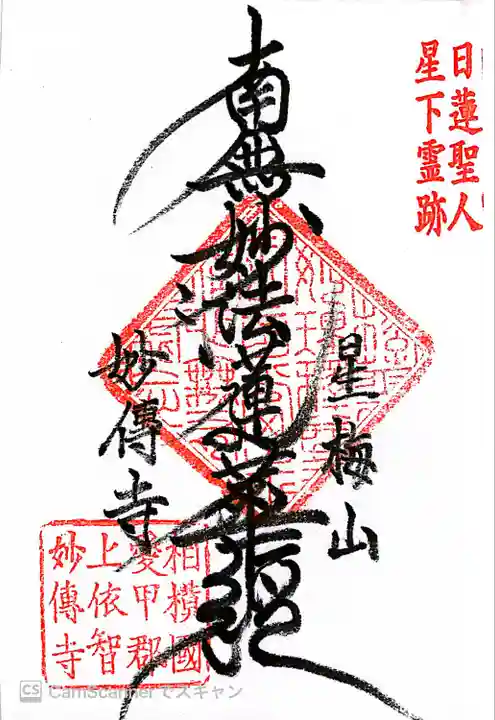 日蓮聖人
星下霊跡
南無妙法蓮華経
星梅山
妙傳寺
相模國
愛甲郡
上依智
妙傳寺
CS CamScannerでスキャン